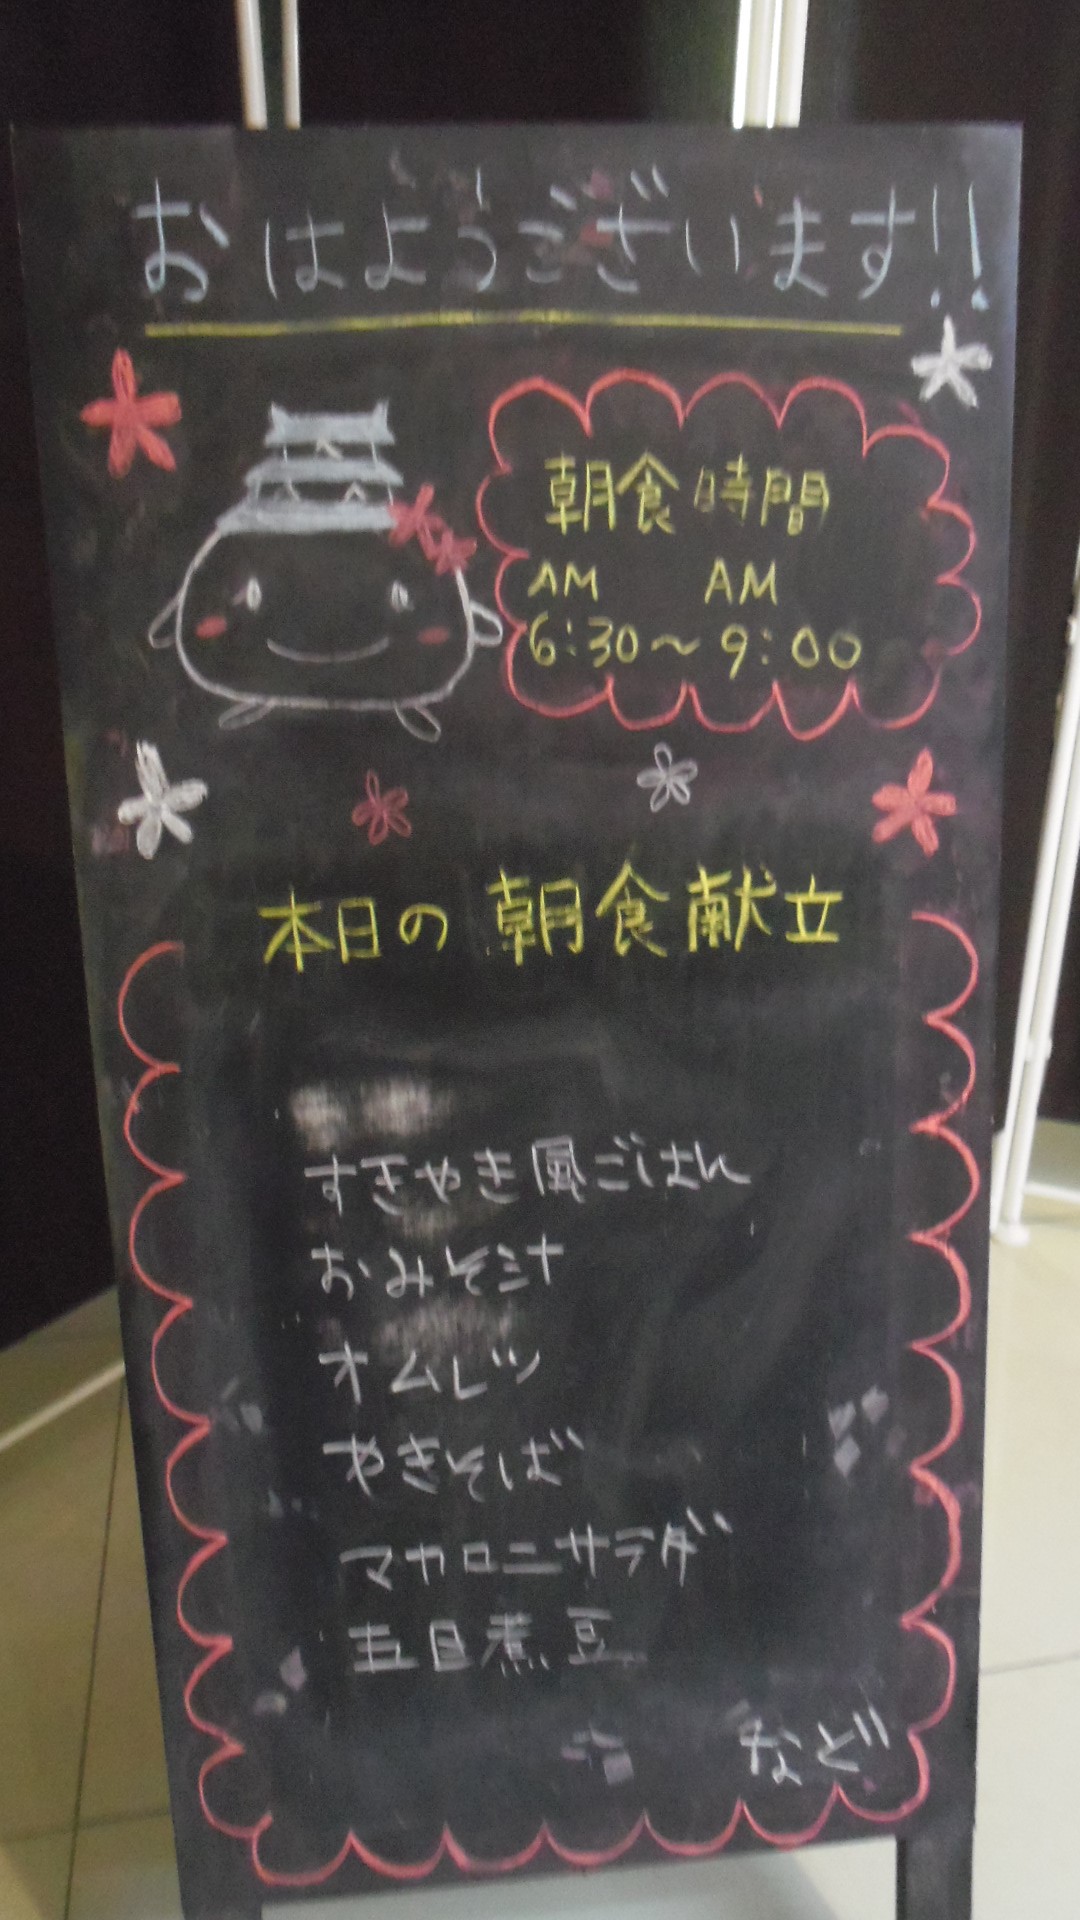 おはようございます!!
朝食時間
AM AM
6:30～9:00
本日の朝食献立
すきやき風ごはん
おみそ汁
オムレツ
やきそば
マカロニサラダ
五目煮豆
など